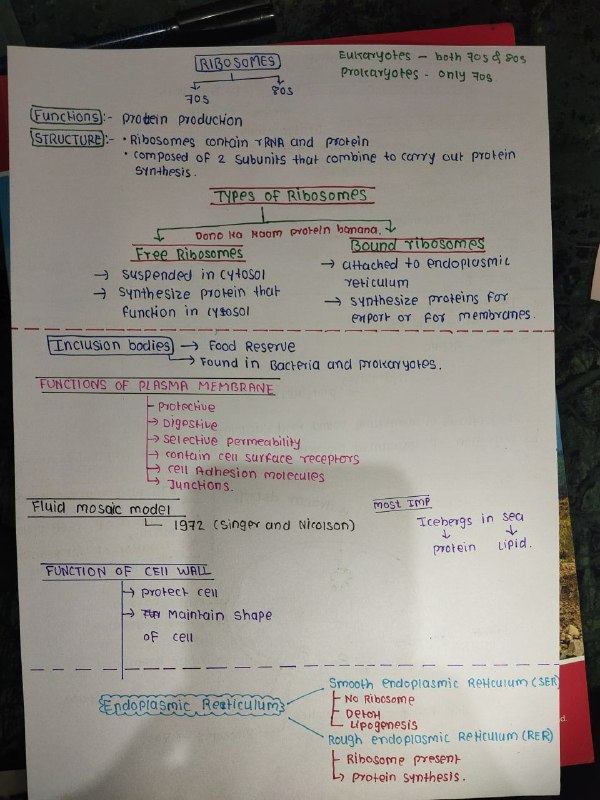 RIBOSOMES
70s 80s
Eukaryotes - both 70s & 80s
Prokaryotes - only 70s
Functions :- Protein production
STRUCTURE :- • Ribosomes contain rRNA and protein
• composed of 2 subunits that combine to carry out protein
synthesis.
Types of Ribosomes
Dono ka kaam protein banana.
Free Ribosomes
→ suspended in cytosol
→ synthesize protein that
function in cytosol
Bound ribosomes
→ attached to endoplasmic
reticulum
→ synthesize proteins for
export or for membranes.
Inclusion bodies → Food Reserve
→ Found in Bacteria and prokaryotes.
FUNCTIONS OF PLASMA MEMBRANE
Protective
→ Digestive
→ Selective permeability
→ contain cell surface receptors
→ cell Adhesion molecules
→ Junctions.
Fluid mosaic model
1972 (Singer and Nicolson)
most IMP
Icebergs in sea
↓ ↓
protein Lipid.
FUNCTION OF CELL WALL
→ protect cell
→ Maintain shape
of cell
Endoplasmic Reticulum
Smooth endoplasmic Reticulum (SER)
No Ribosome
Detox
Lipogenesis
Rough endoplasmic Reticulum (RER)
Ribosome present
→ Protein synthesis.